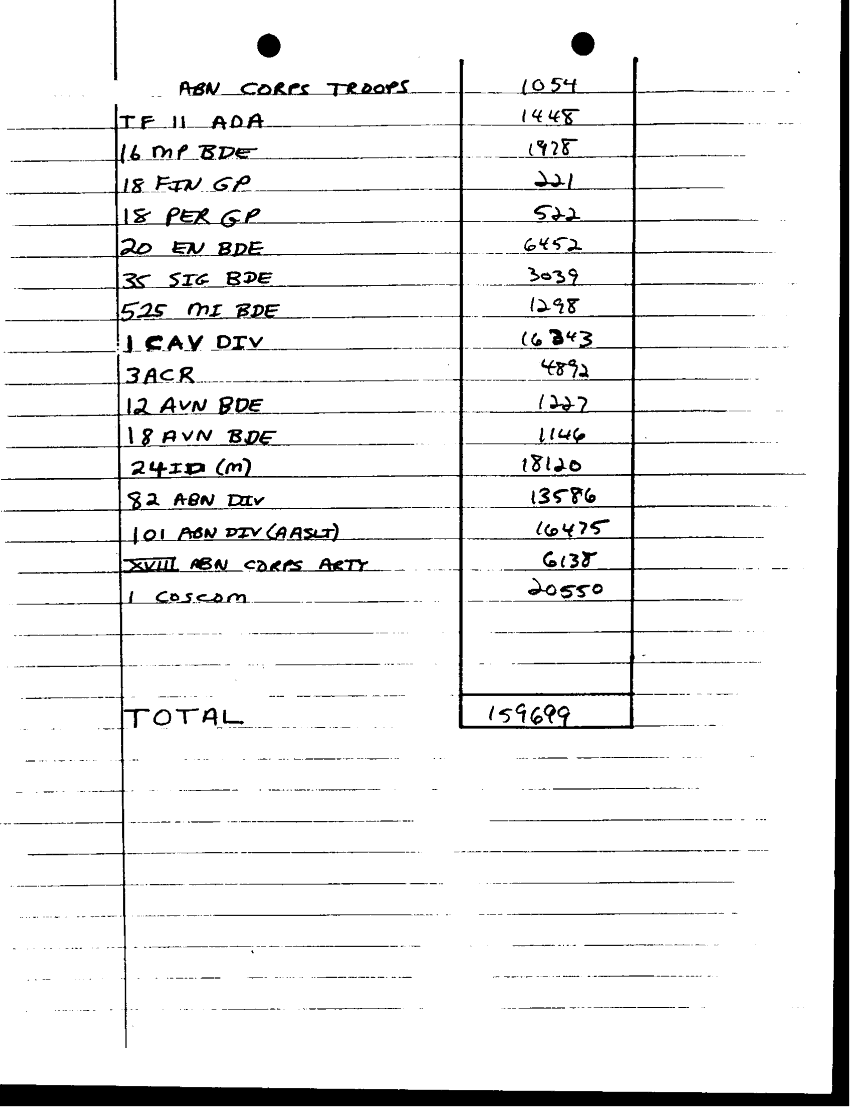 ABN CORPS TROOPS 1054
TF 11 ADA 1448
16 MP BDE 1978
18 FIN GP 221
18 PER GP 522
20 EN BDE 6452
35 SIG BDE 3039
525 MI BDE 1298
1 CAV DIV
3ACR 4892
12 AVN BDE 1227
18 AVN BDE 1146
24ID (M) 18120
82 ABN DIV 13586
101 ABN DIV (AASLT) 16475
XVIII ABN CORPS ARTY 6138
1 COSCOM 20550
TOTAL 159699